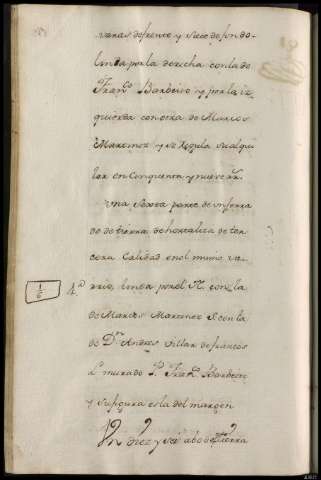 varas de frente y siete de fondo
linda por la derecha con la de
Fran.co Bardeiro y por la iz
quierda con otra de Marcos
Martinez y se Regula su alqui
ler en Cinquenta y nueve rr.
Una Sexta parte de un ferra
do de tierra de hortaliza de ter
cera Calidad en el mismo
linda por el N. con la
1/6
4.a
de Marcos Martinez S. con la
de D.n Andres Villar de francos
L. murado P. Fran.co Bardeiro
y su figura es la del margen
Un diez y seis abo de tierra